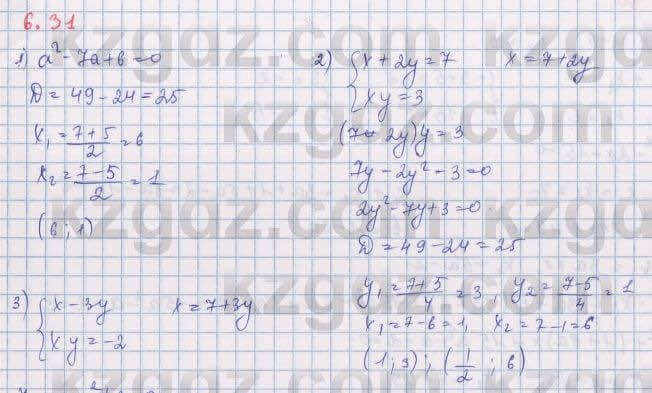 6.31
1) a² - 7a + 6 = 0
D = 49 - 24 = 25
x₁ = (7+5)/2 = 6
x₂ = (7-5)/2 = 1
(6 ; 1)
2) { x + 2y = 7 x = 7 + 2y
xy = 3
(7 - 2y)y = 3
7y - 2y² - 3 = 0
2y² - 7y + 3 = 0
D = 49 - 24 = 25
y₁ = (7+5)/4 = 3, y₂ = (7-5)/4 = 1
x₁ = 7 - 6 = 1, x₂ = 7 - 1 = 6
(1 ; 3) ; (1/2 ; 6)
3) { x - 3y x = 7 + 3y
xy = -2
kzgdz.com
kzgdz.com
kzgdz.com
kzgdz.com